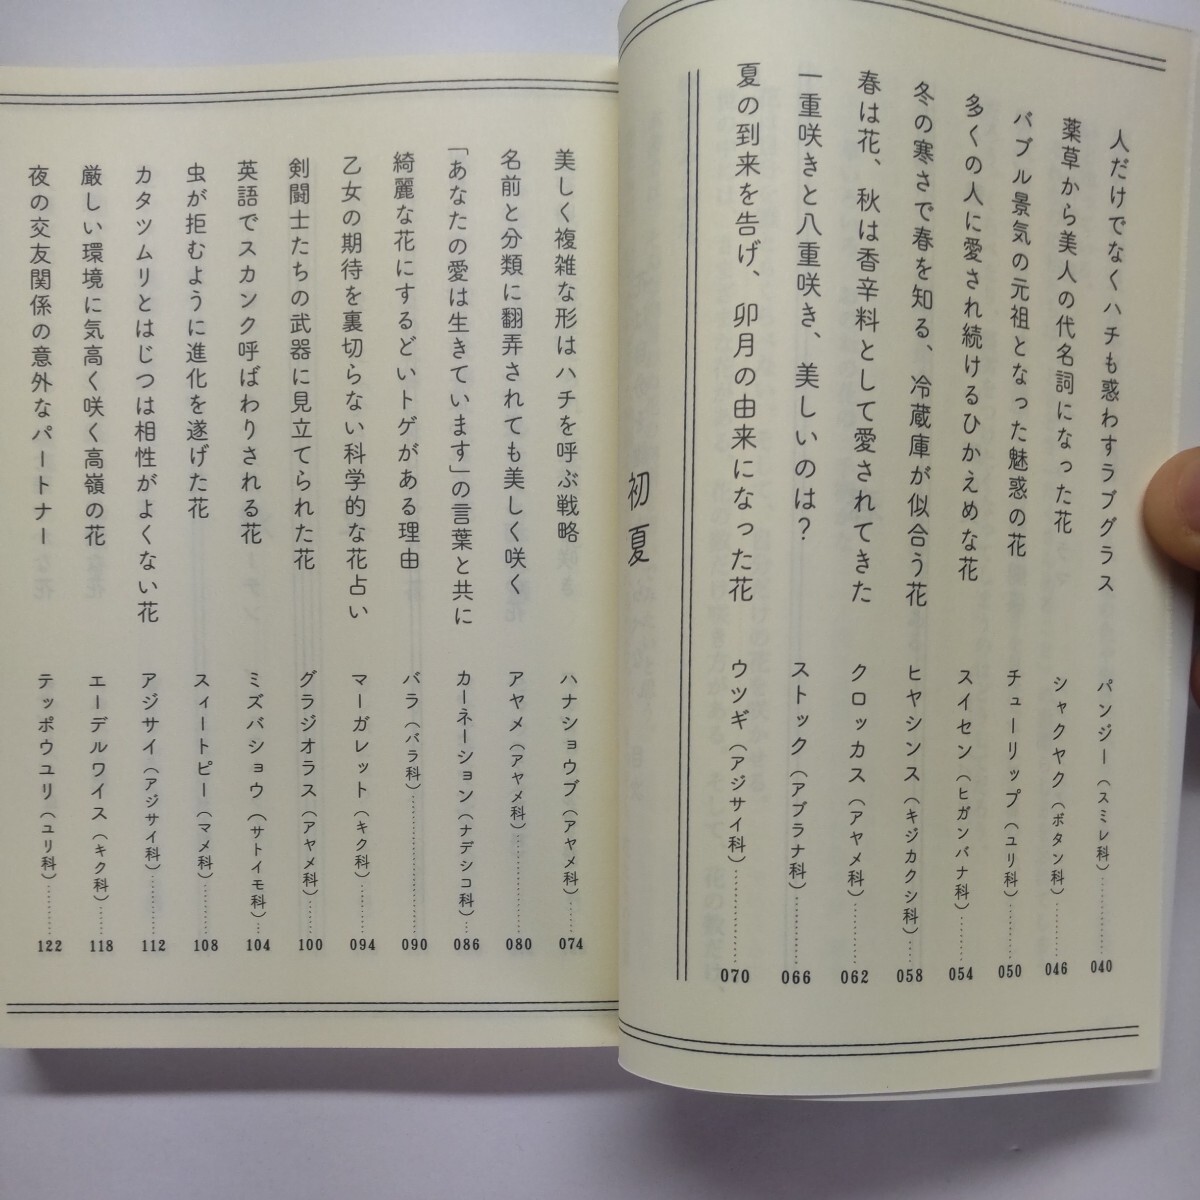 人だけでなくハチも惑わすラブグラス　パンジー（スミレ科）………040
薬草から美人の代名詞になった花　シャクヤク（ボタン科）………046
バブル景気の元祖となった魅惑の花　チューリップ（ユリ科）………050
多くの人に愛され続けるひかえめな花　スイセン（ヒガンバナ科）……054
冬の寒さで春を知る、冷蔵庫が似合う花　ヒヤシンス（キジカクシ科）…058
春は花、秋は香辛料として愛されてきた　クロッカス（アヤメ科）………062
一重咲きと八重咲き、美しいのは？　ストック（アブラナ科）………066
夏の到来を告げ、卯月の由来になった花　ウツギ（アジサイ科）………070
初夏
美しく複雑な形はハチを呼ぶ戦略　ハナショウブ（アヤメ科）……074
名前と分類に翻弄されても美しく咲く　アヤメ（アヤメ科）………080
「あなたの愛は生きています」の言葉と共に　カーネーション（ナデシコ科）…086
綺麗な花にするどいトゲがある理由　バラ（バラ科）………090
乙女の期待を裏切らない科学的な花占い　マーガレット（キク科）………094
剣闘士たちの武器に見立てられた花　グラジオラス（アヤメ科）……100
英語でスカンク呼ばわりされる花　ミズバショウ（サトイモ科）…104
虫が拒むように進化を遂げた花　スィートピー（マメ科）………108
カタツムリとはじつは相性がよくない花　アジサイ（アジサイ科）………112
厳しい環境に気高く咲く高嶺の花　エーデルワイス（キク科）……118
夜の交友関係の意外なパートナー　テッポウユリ（ユリ科）………122